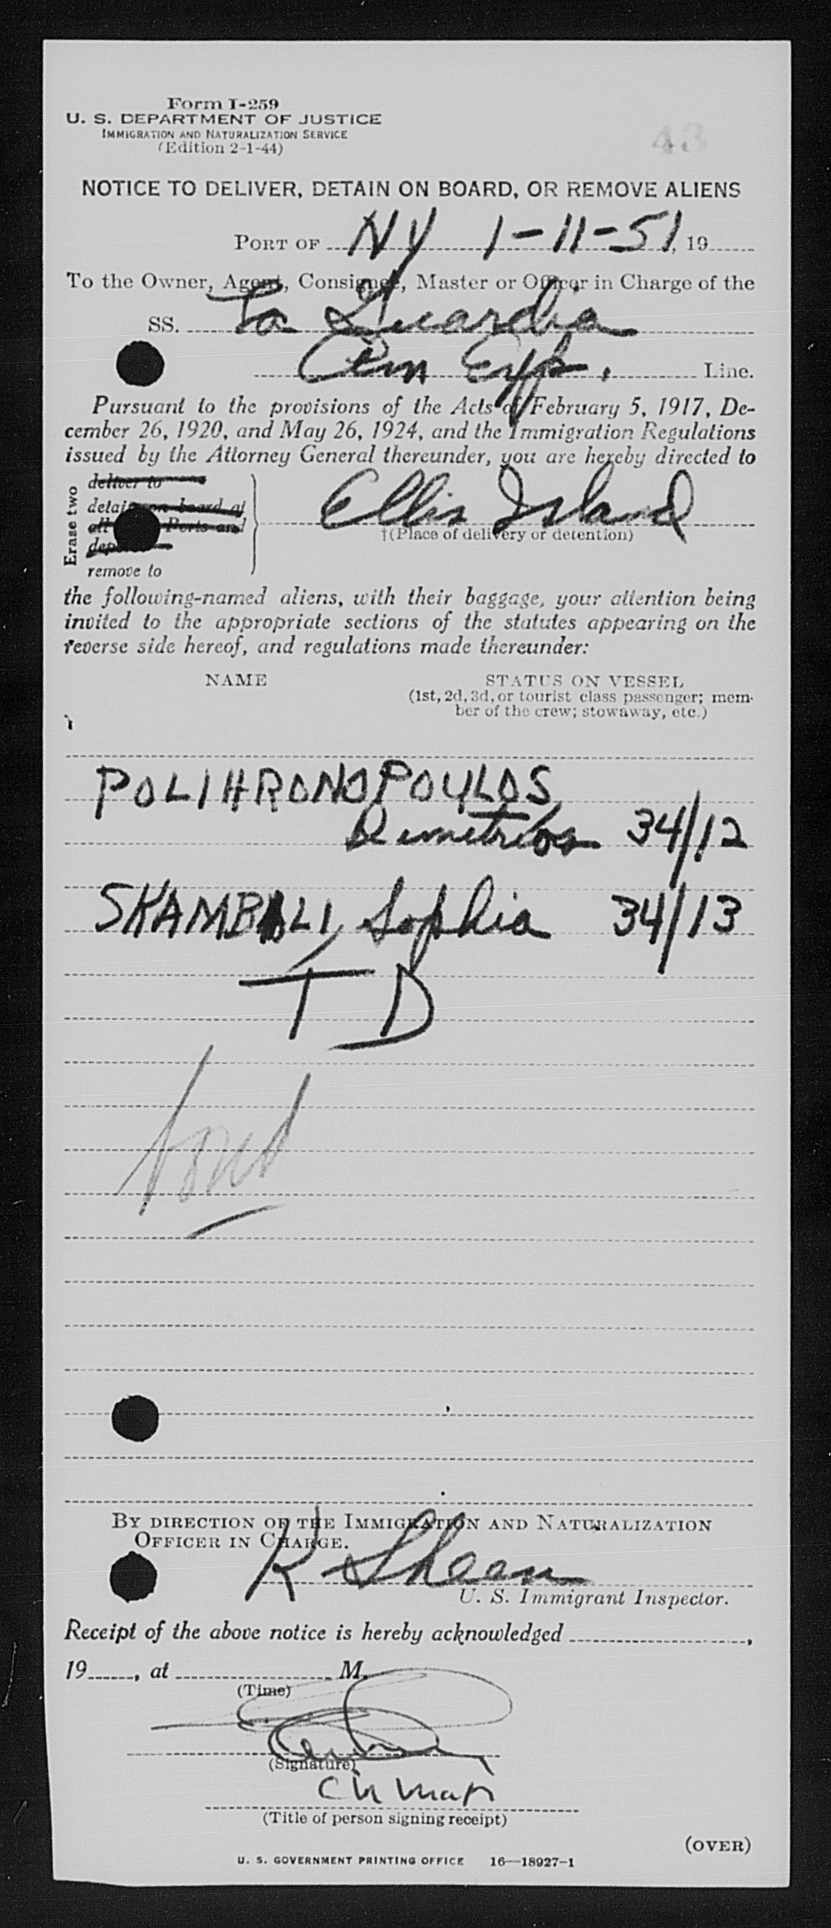 Form I-259
U. S. DEPARTMENT OF JUSTICE
IMMIGRATION AND NATURALIZATION SERVICE
(Edition 2-1-44)
43
NOTICE TO DELIVER, DETAIN ON BOARD, OR REMOVE ALIENS
PORT OF NY 1-11-51, 19
To the Owner, Agent, Consignee, Master or Officer in Charge of the
SS. La Guardia
Am Exp. Line.
Pursuant to the provisions of the Acts of February 5, 1917, De-
cember 26, 1920, and May 26, 1924, and the Immigration Regulations
issued by the Attorney General thereunder, you are hereby directed to
Erase two
deliver to
detain on board at
all Ports and
remove to
Ellis Island
†(Place of delivery or detention)
the following-named aliens, with their baggage, your attention being
invited to the appropriate sections of the statutes appearing on the
reverse side hereof, and regulations made thereunder:
NAME STATUS ON VESSEL
(1st, 2d, 3d, or tourist class passenger; mem-
ber of the crew; stowaway, etc.)
POLIHRONOPOULOS
Dimitrios 34/12
SKAMBALI, Sophia 34/13
T D
BY DIRECTION OF THE IMMIGRATION AND NATURALIZATION
OFFICER IN CHARGE.
K Sheen
U. S. Immigrant Inspector.
Receipt of the above notice is hereby acknowledged ,
19 , at M.
(Time)
(Signature)
(Title of person signing receipt)
(OVER)
U. S. GOVERNMENT PRINTING OFFICE 16—18927-1